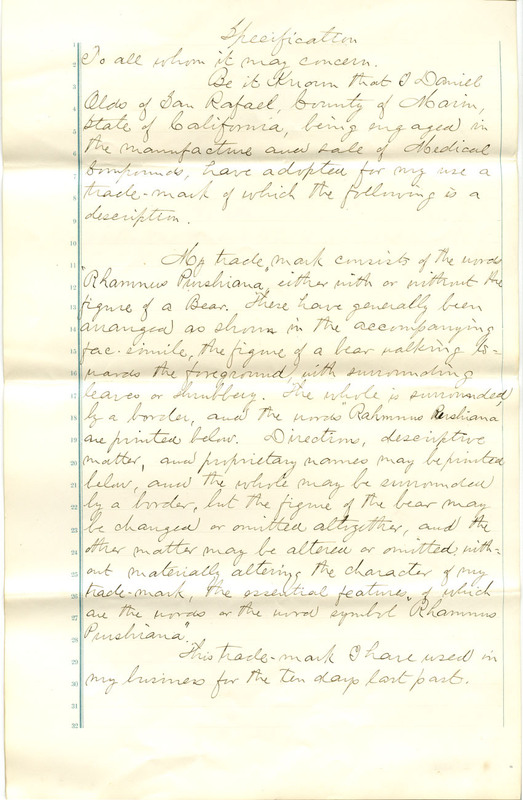 Specification
1
2 To all whom it may concern.
3 Be it Known that I Daniel
4 Olds of San Rafael, County of Marin,
5 State of California, being engaged in
6 the manufacture and sale of Medical
7 Compounds, have adopted for my use a
8 trade-mark of which the following is a
9 description.
10
11 My trade mark consists of the words
12 "Rhamnus Purshiana", either with or without the
13 figure of a Bear. These have generally been
14 arranged as shown in the accompanying
15 fac-simile, the figure of a bear walking to-
16 wards the foreground, with surrounding
17 leaves or shrubbery. The whole is surrounded
18 by a border, and the words "Rahmnus Purshiana
19 are printed below. Directions, descriptive
20 matter, and proprietary names may be printed
21 below, and the whole may be surrounded
22 by a border, but the figure of the bear may
23 be changed or omitted altogether, and the
24 other matter may be altered or omitted with-
25 out materially altering the character of my
26 trade-mark, the essential features of which
27 are the words or the word symbol "Rhamnus
28 Purshiana".
29 This trade-mark I have used in
30 my business for the ten days last past.
31
32